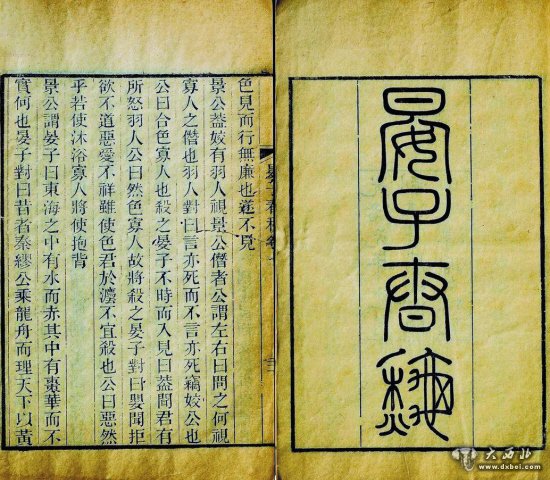 晏子春秋
色見而行無廉也遂不見
景公蓋姣有羽人視景公僭者公謂左右曰問之何視
寡人之僭也羽人對曰言亦死而不言亦死竊姣公也
公曰合色寡人也殺之晏子不時而入見曰蓋聞君有
所怒羽人公曰然色寡人故將殺之晏子對曰嬰聞拒
欲不道惡愛不祥雖使色君於灋不宜殺也公曰惡然
乎若使沐浴寡人將使抱背
景公謂晏子曰東海之中有水而赤其中有棗華而不
實何也晏子對曰昔者秦繆公乘龍舟而理天下以黃
大西北
www.dxbei.com